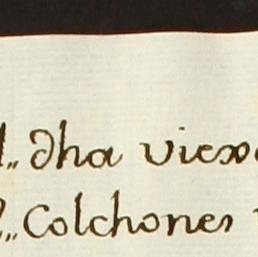 dha viexa
Colchones